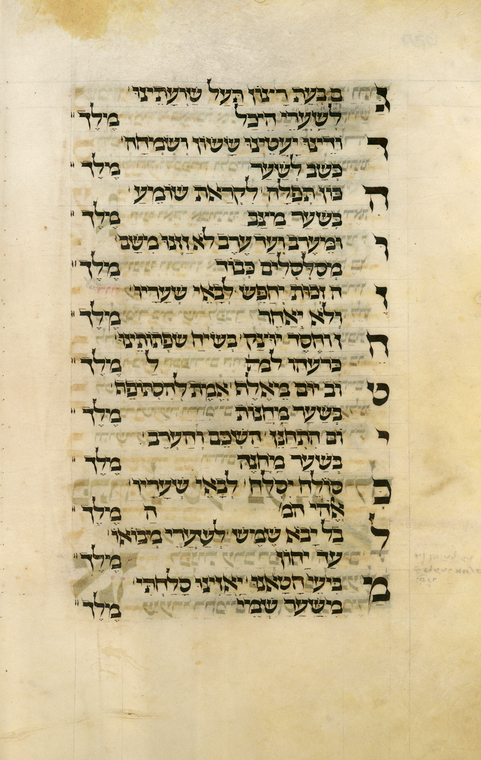 גם בעת רינון תעל שועתינו
לשערי היכל מלך
ד ורינו יעטינו ששון ושמחה
בשב לשער מלך
ה כון תפלה לקראת שומע
בשער מלך
ו ומערב ועד ערב לא זזנו משם
מסלסלים כבוד מלך
זה זמות יחפש לבאי שעריו
ולא יאחר מלך
ח וחסד בשיח שפתותינו
כרעהו מלך
טוב יום מאלף אמת להסתופף
בשער מחנות מלך
יום התחנן השכם והערב
בשער מחנה מלך
כ סולח יסלח לבאי שעריו
אהי מלך
ל כל יבא שמש לשערי מבואו
עד יחון מלך
מ חטאנו יאזינו סלחתי
משער שמי מלך